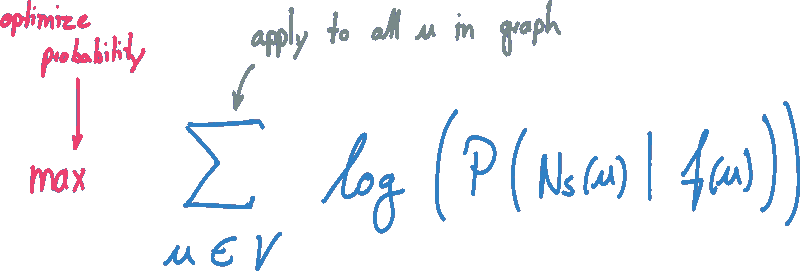 optimize
probability
apply to all u in graph
max ∑ log(P(Ns(u) | f(u)))
u ∈ V